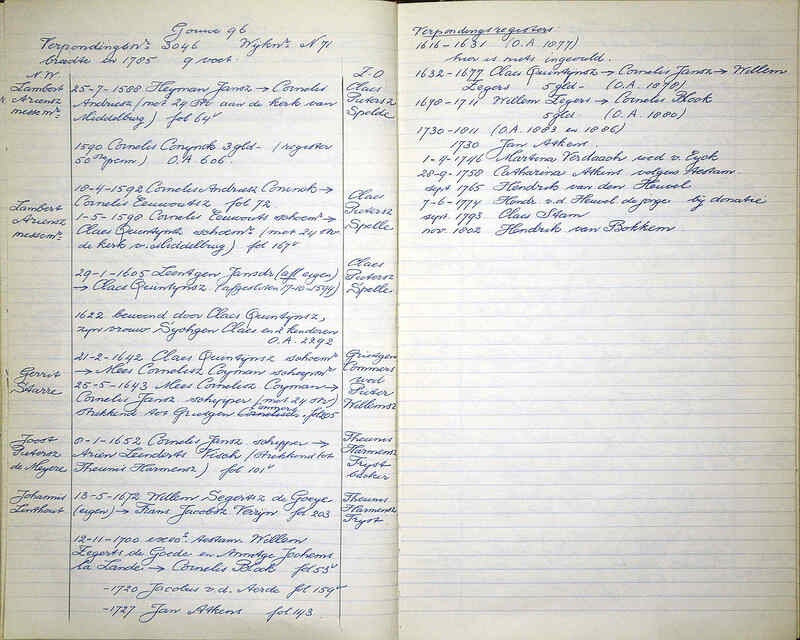 Gouwe 96
Verpondingsnr. 3046 Wijknr. N 71
breedte in 1785 9 voet.
N.W. Z.O
Lambert 25-7-1588 Heyman Jansz → Cornelis Claes
Ariensz Andriesz (met 24 str aan de kerk van Pietersz
messemr. Middelburg) fol 64v Spelle
1590 Cornelis Conynck 3 gld- (register
50ste penn.) O.A 606.
10-4-1592 Cornelis Andriesz Coninck → Claes
Lambert Cornelis Eeuwoutsz fol 72 Pietersz
Ariensz 1-5-1598 Cornelis Eeuwouts schoenmr → Spelle
messemr. Claes Quintynsz schoenmr (met 24 str
de kerk v. Middelburg) fol 167v
Claes
29-1-1605 Leentgen Jansdr (afl eigen) Pietersz
→ Claes Quintynsz (afgesloten 17-10-1594) Spelle
1622 bewoond door Claes Quintynsz,
zyn vrouw Sychgen Claes en 2 kinderen
O.A. 2292
21-2-1642 Claes Quintynsz schoenmr Grietgen
Gerrit → Mees Cornelisz Coyman schepmr Commers
Starre 25-5-1643 Mees Cornelisz Coyman → wed
Cornelis Jansz schipper (met 24 str) Pieter
strekkende tot Grietgen Commers fol 205 Willemsz
Joost 8-1-1652 Cornelis Jansz schipper → Theunis
Pietersz Arien Leenderts Visch (strekkend tot Harmensz
de Meyere Theunis Harmensz) fol 101v Tryst
backer
Johannis 13-5-1672 Willem Segertsz de Goeye Theunis
Lenthout (eigen) → Frans Jacobsz Verryn fol 203 Harmensz
Tryst
12-11-1700 exec. testam. Willem
Zegerts de Goede en Annetge Jochems
la Lande → Cornelis Blok fol 53v
-1720 Jacobus v.d. Aerde fol 159v
-1727 Jan Atkens fol 143
Verpondingsregisters
1616-1631 (O.A. 1077)
hier is niets ingevuld.
1632-1677 Claes Quintynsz → Cornelis Jansz → Willem
Zegers 5 gld- (O.A. 1078)
1678-1711 Willem Zegers → Cornelis Blok
5 gld (O.A. 1080)
1730-1811 (O.A. 1083 en 1086)
1730 Jan Atkens
1-4-1746 Martina Verdaach wed v. Eyck
28-9-1758 Catharina Atkins volgens testam.
sept 1765 Hendrik van den Heuvel
7-6-1774 Hendr. v.d. Heuvel de jonge bij donatie
sept. 1793 Claes Stam
nov. 1802 Hendrik van Bokkem